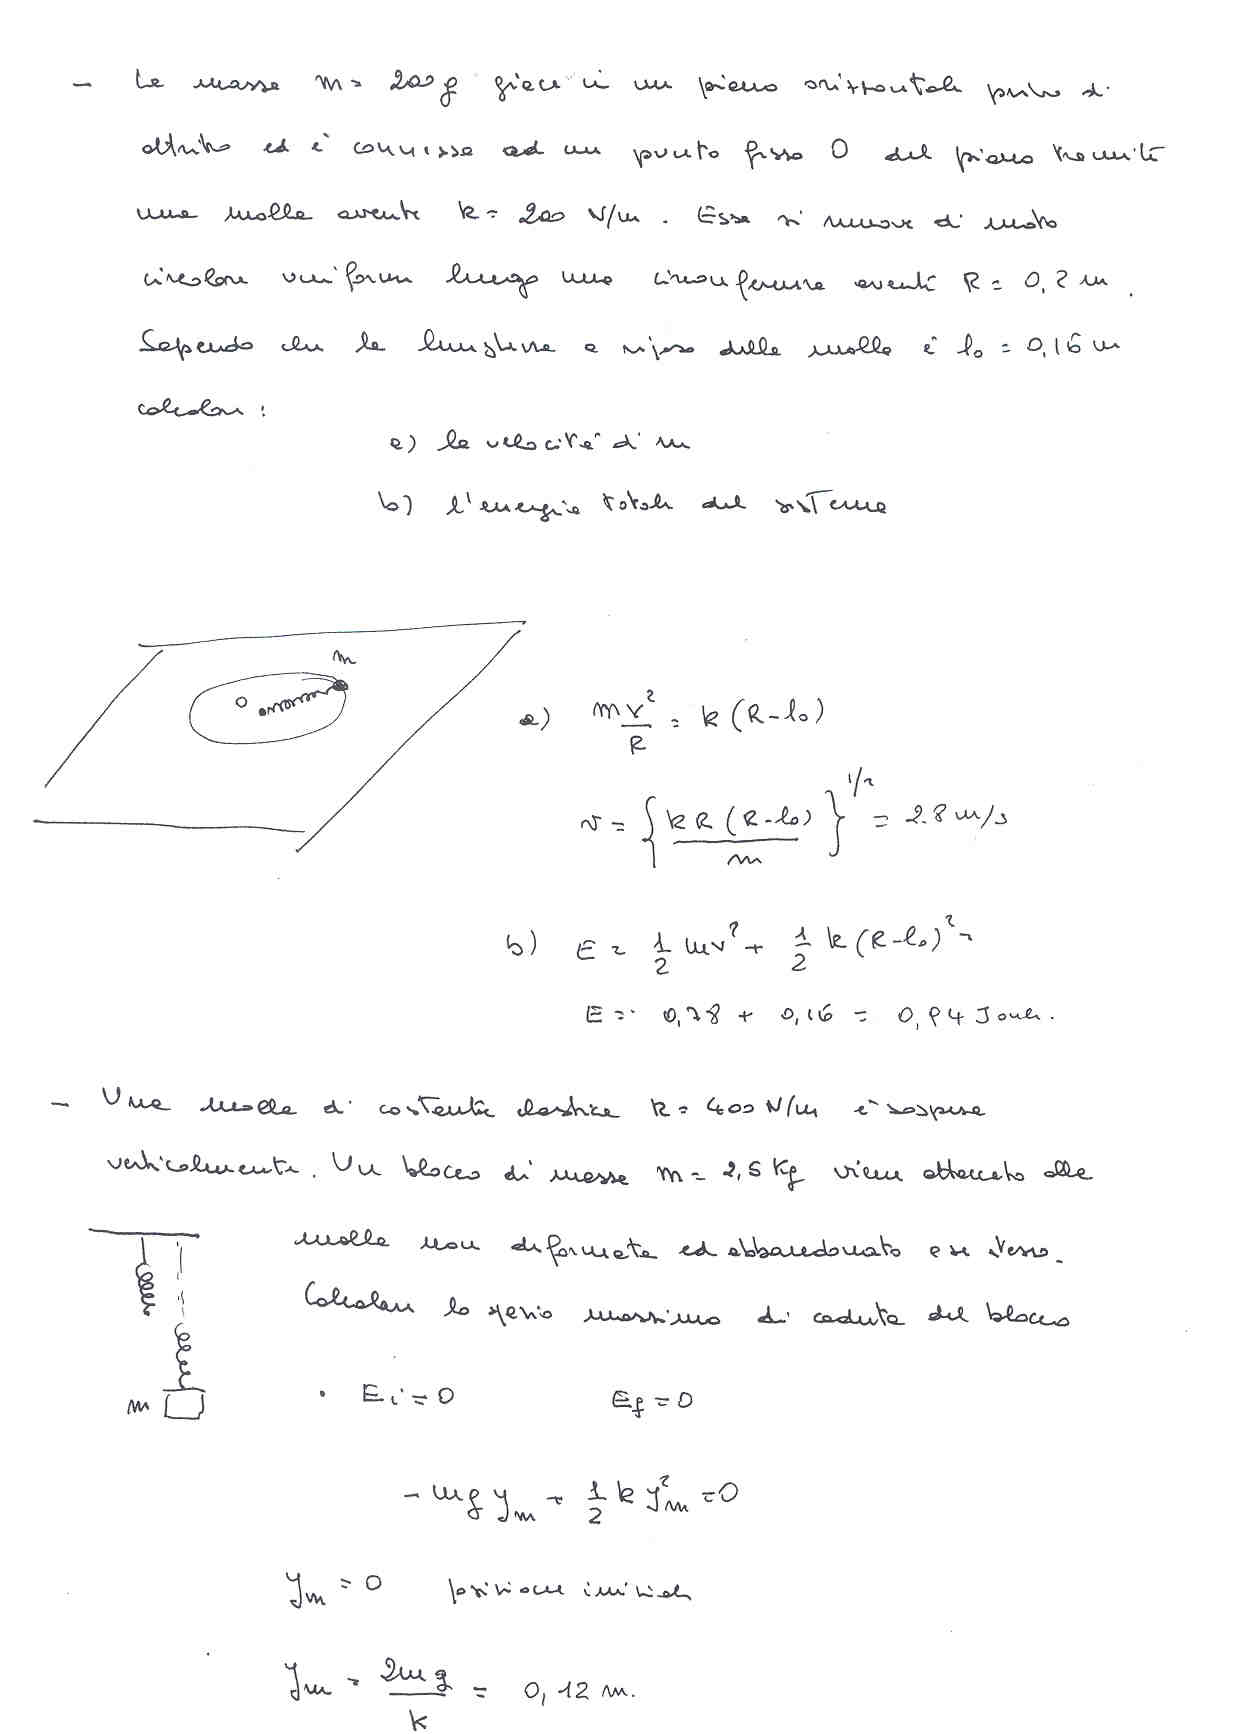 - La massa m = 200 g giace in un piano orizzontale privo di
attrito ed è connessa ad un punto fisso O del piano tramite
una molla avente k = 200 N/m. Essa si muove di moto
circolare uniforme lungo una circonferenza avente R = 0,2 m.
Sapendo che la lunghezza a riposo della molla è l₀ = 0,16 m
calcolare:
a) la velocità di m
b) l'energia totale del sistema
m
O
a) mv²/R = k (R-l₀)
v = { kR (R-l₀) / m }^1/2 = 2.8 m/s
b) E = 1/2 mv² + 1/2 k (R-l₀)² =
E = 0,78 + 0,16 = 0,94 Joule.
- Una molla di costante elastica k = 400 N/m è sospesa
verticalmente. Un blocco di massa m = 2,5 Kg viene attaccato alla
molla non deformata ed abbandonato a se stesso.
Calcolare lo spazio massimo di caduta del blocco
m
· Ei = 0 Ef = 0
- mg ym + 1/2 k ym² = 0
ym = 0 posizione iniziale
ym = 2mg/k = 0,12 m.